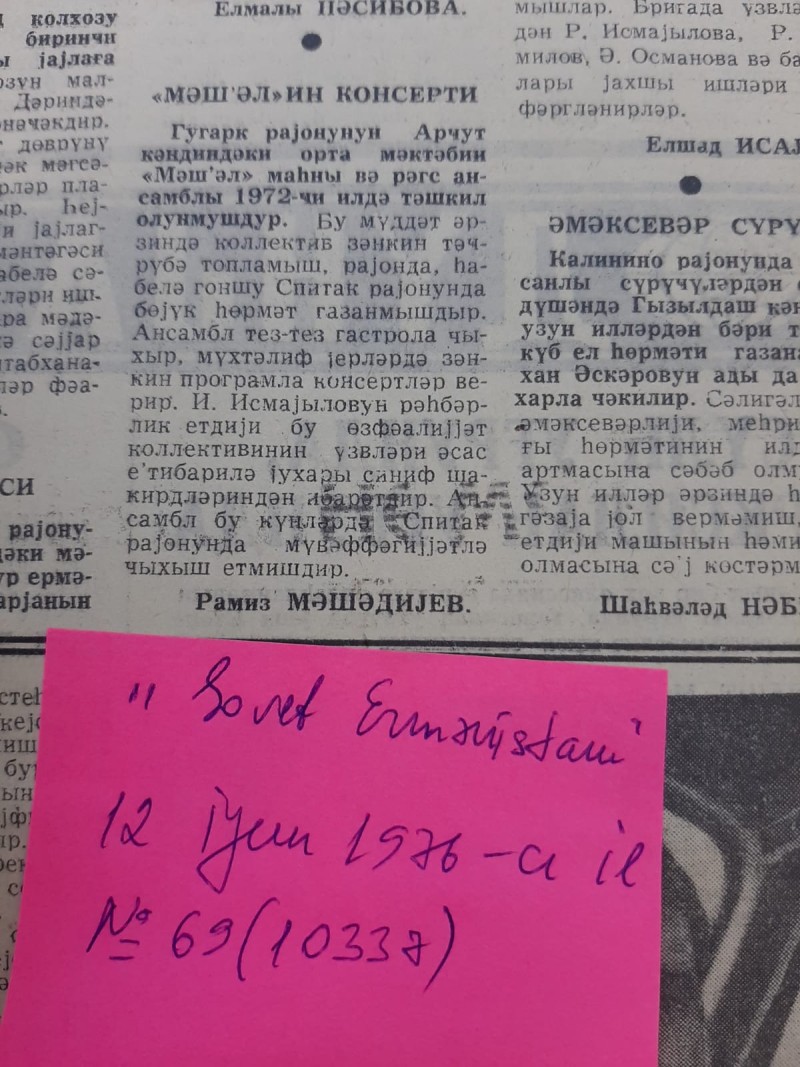 колхозу
биринчи
ы јајлаға
рзүн мал-
Дәриндә-
нәчәкдир.
дөврүнү
әк мәгсә-
рләр пла-
ыр. Һеј-
и јајлаг-
мәнтәгәси
абелә сә-
ләри иш-
ра мәдә-
ә сәјјар
табхана-
ләр фәа-
СИ
рајону-
дәки мә-
үр ермә-
арҹанын
Елмалы НӘСИБОВА.
«МӘШ'ӘЛ»ИН КОНСЕРТИ
Гугарк рајонунун Арчут
кәндиндәки орта мәктәбин
«Мәш'әл» маһны вә рәгс ан-
самблы 1972-чи илдә тәшкил
олунмушдур. Бу мүддәт әр-
зиндә коллектив зәнкин тәч-
рүбә топламыш, рајонда, һа-
белә гоншу Спитак рајонунда
бөјүк һөрмәт газанмышдыр.
Ансамбл тез-тез гастрола чы-
хыр, мүхтәлиф јерләрдә зән-
кин програмла консертләр ве-
рир. И. Исмајыловун рәһбәр-
лик етдији бу өзфәалијјәт
коллективинин үзвләри әсас
е'тибарилә јухары синиф ша-
кирдләриндән ибарәтдир. Ан-
самбл бу күнләрдә Спитак
рајонунда мүвәффәгијјәтлә
чыхыш етмишдир.
Рамиз МӘШӘДИЈЕВ.
мышлар. Бригада үзвлә
дән Р. Исмајылова, Р.
милов, Ә. Османова вә ба
лары јахшы ишләри
фәргләнирләр.
Елшад ИСАЈ
ӘМӘКСЕВӘР СҮРҮ
Калинино рајонунда
санлы сүрүчүләрдән
дүшәндә Гызылдаш кән
узун илләрдән бәри т
күб ел һөрмәти газана
хан Әскәровун ады да
харла чәкилир. Сәлигәл
әмәксевәрлији, меһри
ғы һөрмәтинин илд
артмасына сәбәб олм
Узун илләр әрзиндә һ
гәзаја јол вермәмиш,
етдији машынын һәми
олмасына сә'ј көстәрм
Шаһвәләд НӘБ
"Sovet Ermənistanı"
12 iyun 1976-cı il
№ 69 (10337)